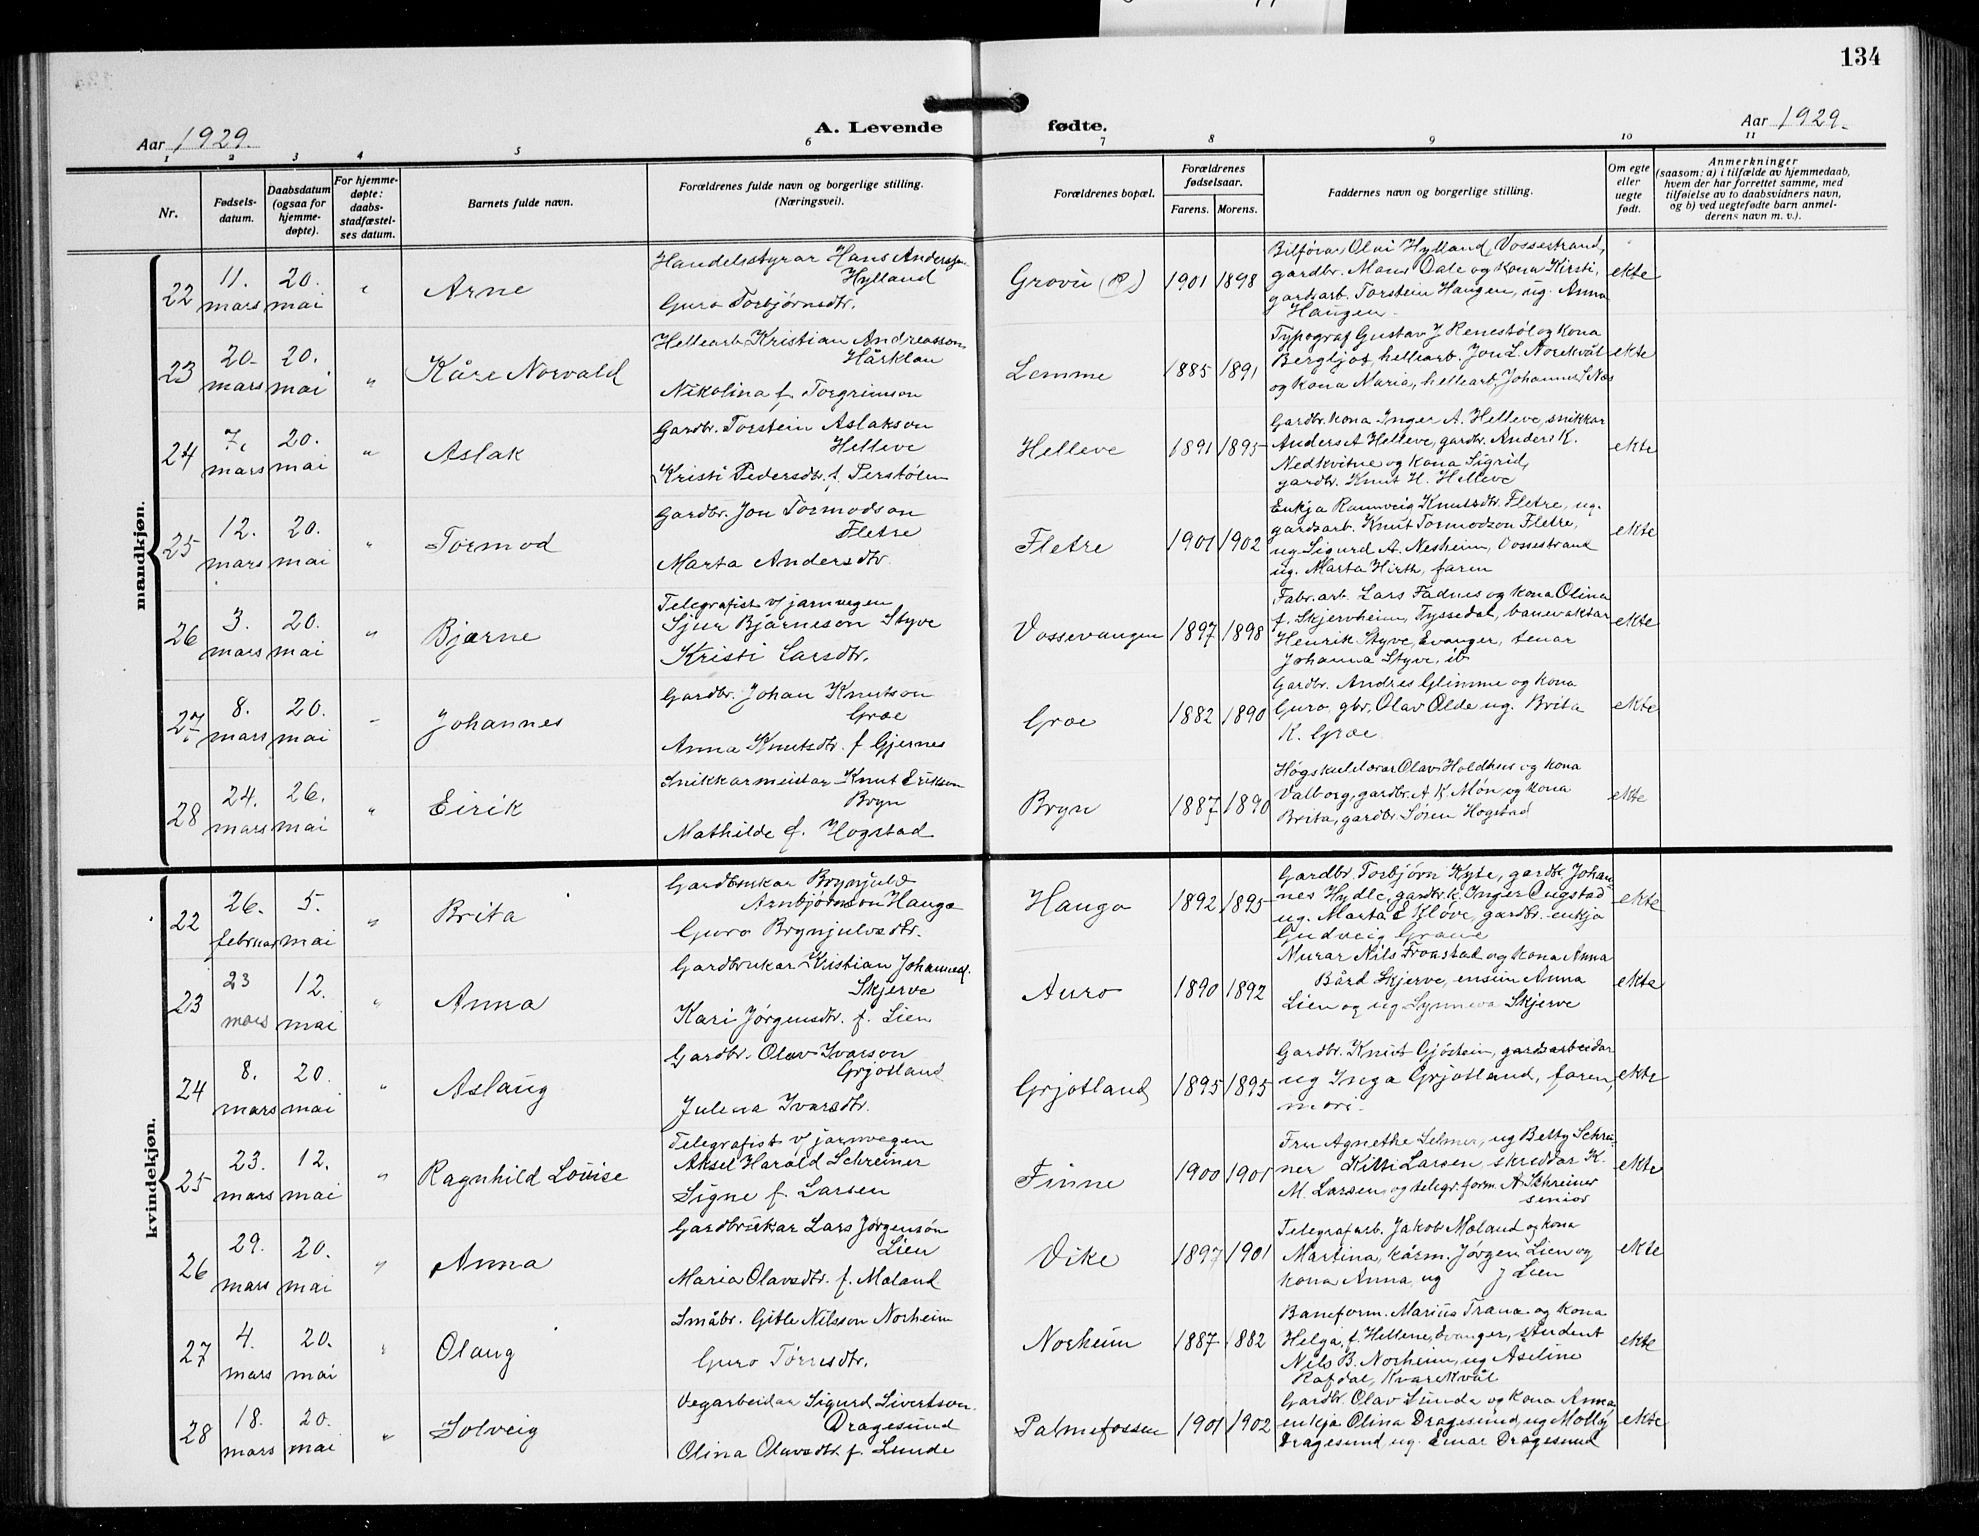 134
Aar 1929.
A. Levende fødte.
Aar 1929.
1 2 3 4 5 6 7 8 9 10 11
Nr.
Fødsels-
datum.
Daabsdatum
(ogsaa for
hjemme-
døpte).
For hjemme-
døpte:
daabs-
stadfæstel-
ses datum.
Barnets fulde navn.
Forældrenes fulde navn og borgerlige stilling.
(Næringsvei).
Forældrenes bopæl.
Forældrenes
fødselsaar.
Farens. Morens.
Faddernes navn og borgerlige stilling.
Om egte
eller
uegte
født.
Anmerkninger
(saasom: a) i tilfælde av hjemmedaab,
hvem der har forrettet samme, med
tilføielse av to daabsvidners navn,
og b) ved uegtefødte barn anmel-
derens navn m. v.).
mandkjøn.
22
11.
mars
20.
mai
"
Arne
Handelsstyrar Hans Anderss.
Hylland
Guro Torbjørnsdtr.
Grovu (R)
1901 1898
Bilførar Olai Hylland, Vossestrand,
gardbr. Mons Dale og kona Kirsti,
gardsarb. Torstein Haugen, ug. Anna
Haugen.
ekte
23
20.
mars
20.
mai
"
Kåre Norvald
Hellearb. Kristian Andreasson
Hårklau
Nikolina f. Torgrimson
Lemme
1885 1891
Typograf Gustav J Renestøl og kona
Bergljot, hellearb. Jon L. Norekvål
og kona Maria, hellearb. Johannes S Næs
ekte
24
7.
mars
20.
mai
"
Aslak
Gardbr. Torstein Aslakson
Helleve
Kristi Pedersdtr. f. Perstølen
Helleve
1891 1895
Gardbr. kona Inger A. Helleve, snikkar
Anders A Helleve, gardbr. Anders K.
Nedkvitne og kona Sigrid,
gardbr. Knut H. Helleve
ekte
25
12.
mars
20.
mai
"
Tormod
Gardbr. Jon Tormodson
Fletre
Marta Andersdtr.
Fletre
1901 1902
Enkja Rannveig Knutsdtr. Fletre, ug.
gardsarb. Knut Tormodson Fletre,
ug Sigurd A. Nesheim, Vossestrand
ug. Marta Hirth, faren
ekte
26
3.
mars
20.
mai
"
Bjarne
Telegrafist v/ jarnvegen
Sjur Bjarneson Styve
Kristi Larsdtr.
Vossevangen
1897 1898
Fabr. arb. Lars Fadnes og kona Olina
f. Skjervheim, Tyssedal, banevaktar
Henrik Styve, Evanger, tenar
Johanna Styve, ib
ekte
27
8.
mars
20.
mai
"
Johannes
Gardbr. Johan Knutson
Groe
Anna Knutsdtr. f Gjernes
Groe
1882 1890
Gardbr. Andres Glimme og kona
Guro, gbr. Olav Olde ug. Brita
K. Groe
ekte
28
24.
mars
26.
mai
"
Eirik
Snikkarmeistar Knut Erikson
Bryn
Mathilde f. Hogstad
Bryn
1887 1890
Høgskulelærar Olav Holdhus og kona
Valborg, gardbr. A K. Møn og kona
Brita, gardbr. Søren Hogstad
ekte
kvindekjøn.
22
26.
februar
5.
mai
"
Brita
Gardbrukar Brynjulv
Arnbjørnson Hauga
Guro Brynjulvsdtr.
Hauga
1892 1895
Gardbr. Torbjørn Kyte, gardbr. Johan-
nes Hydle, gardbr.k. Inger Øugstad
ug. Marta E Kløve, gardbr. enkja
Gudveig Graue
ekte
23
23
mars
12.
mai
"
Anna
Gardbrukar Kristian Johannes.
Skjerve
Kari Jørgensdtr. f. Lien
Auro
1890 1892
Murar Nils Froastad og kona Anna
Bård Skjerve, ensim Anna
Lien og ug Synneva Skjerve
ekte
24
8.
mars
20.
mai
"
Aslaug
Gardbr. Olav Ivarson
Grjotland
Julena Ivarsdtr.
Grjotland
1895 1895
Gardbr. Knut Gjøstein, gardsarbeidar
ug Inga Grjotland, faren,
mori.
ekte
25
23.
mars
12.
mai
"
Ragnhild Louise
Telegrafist v/ jarnvegen
Aksel Harald Schreiner
Signe f. Larsen
Finne
1900 1901
Fru Agnethe Selmer, ug Betty Schrei-
ner Kitti Larsen, skreddar K.
M. Larsen, og telegr.form. A Schreiner
senior
ekte
26
29.
mars
20.
mai
"
Anna
Gardbrukar Lars Jørgenson
Lien
Maria Olavsdtr. f. Moland
Vike
1897 1901
Telegrafarb. Jakob Moland og kona
Martina, kårm. Jørgen Lien og
kona Anna, ug J Lien
ekte
27
4.
mars
20.
mai
"
Olaug
Småbr. Gitle Nilsson Norheim
Guro Torresdtr.
Norheim
1887 1882
Baneform. Marius Trana og kona
Helga, f. Hellene, Evanger, student
Nils B. Norheim, ug Aseline
Rafdal, Kvarekvål
ekte
28
18.
mars
20.
mai
"
Solveig
Vegarbeidar Sigurd Sivertson
Dragesund
Olina Olavsdtr. f. Lunde
Palmefossen
1901 1902
Gardbr. Olav Lunde og kona Anna,
enkja Olina Dragesund, ug Molly
Dragesund ug. Einar Dragesund
ekte